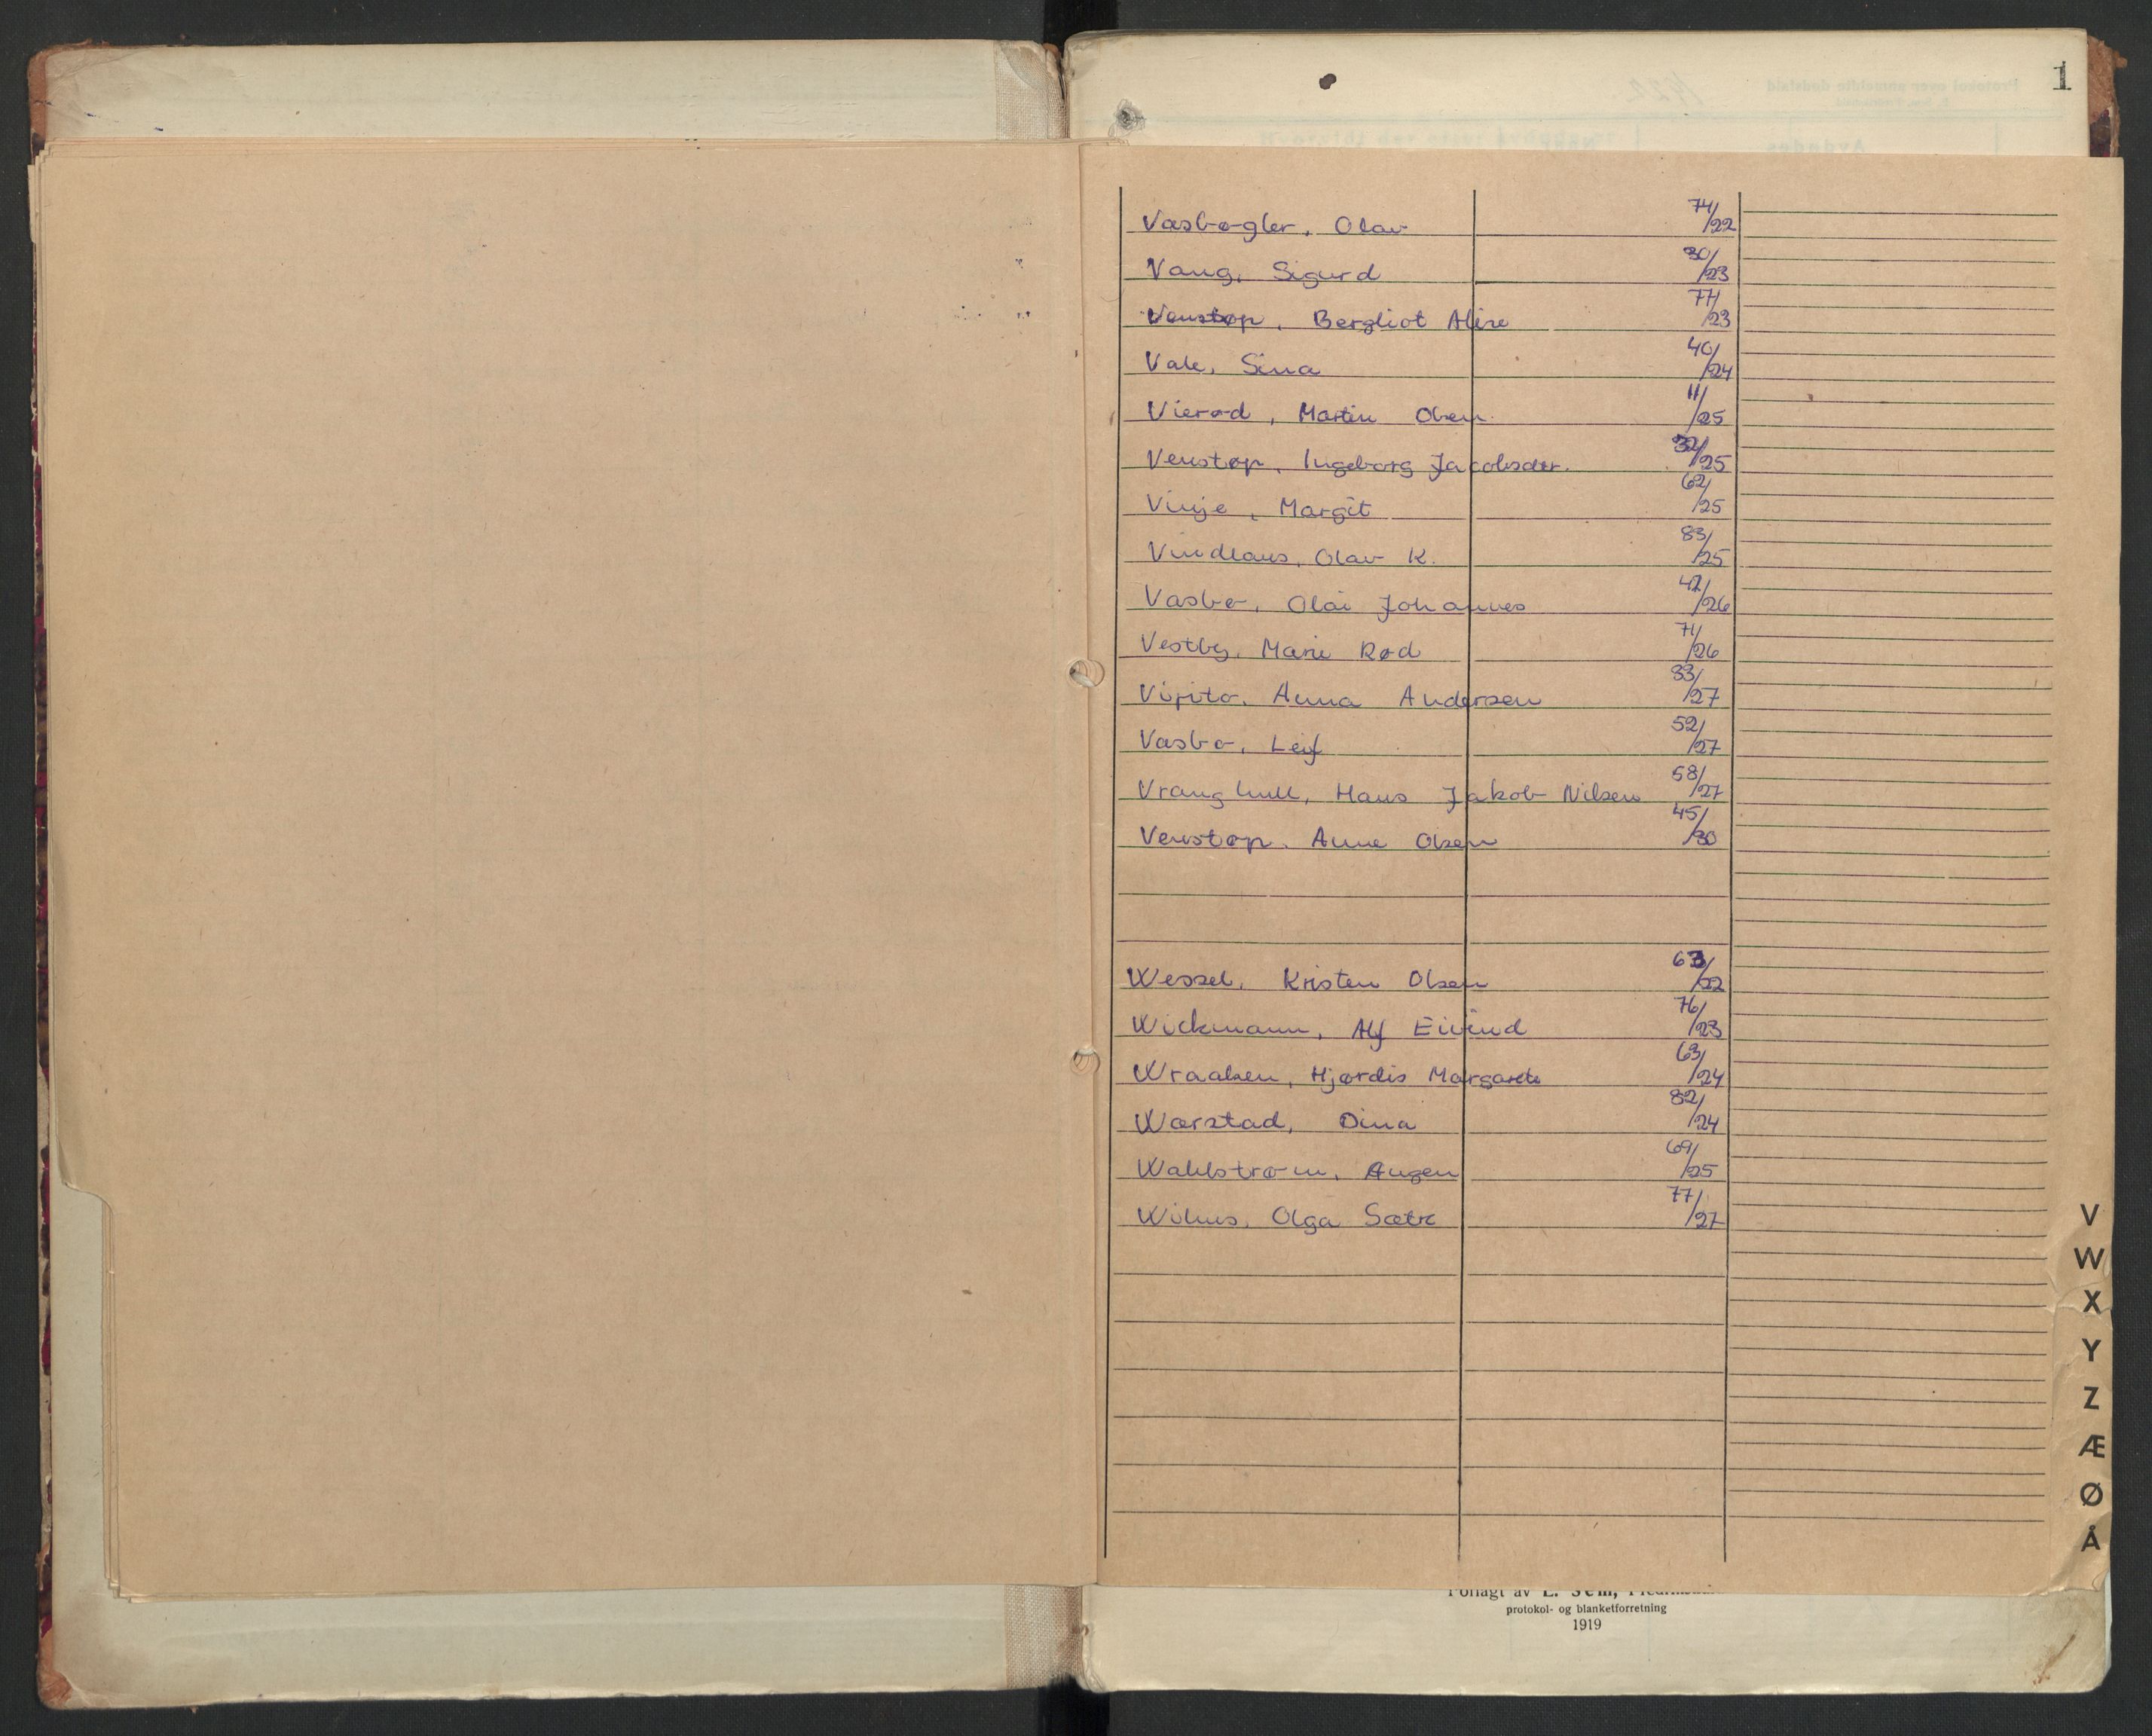 1
Vasbøgler, Olav 74/22
Vang, Sigurd 30/23
Venstøp, Bergliot Aline 77/23
Vale, Sina 40/24
Vierød, Martin Olsen 11/25
Venstøp, Ingeborg Jacobsdtr. 32/25
Vinje, Margit 62/25
Vindlaus, Olav K. 83/25
Vasbø, Olai Johannes 42/26
Vestby, Marie Rød 71/26
Anna Andersen 33/27
Vasbø, Leif 52/27
Vranghull, Hans Jakob Nilsen 58/27
Venstøp, Anne Olsen 45/30
Wessel, Kristen Olsen 63/22
Wickmann, Alf Eivind 76/23
Wraalsen, Hjørdis Margarete 63/24
Wærstad, Dina 82/24
Wahlstrøm, Augen 69/25
Olga Sætre 77/27
V
W
X
Y
Z
Æ
Ø
Å
Forlagt av E. Sem,
protokol- og blanketforretning
1919